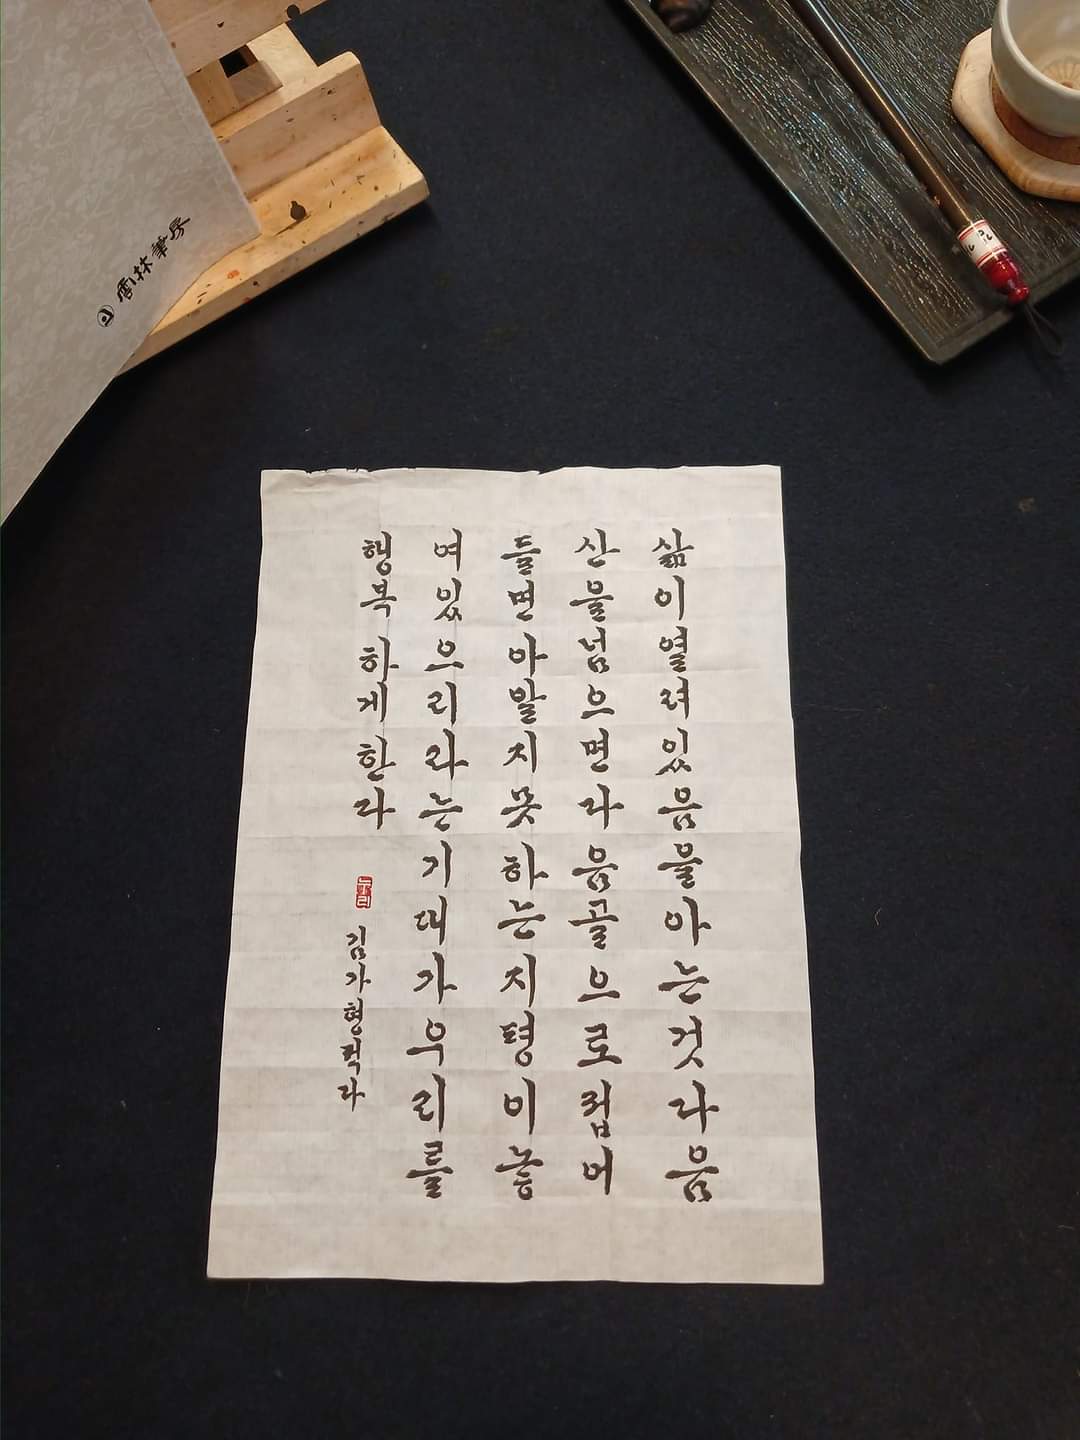 삶이열려있음을아는것다음
산을넘으면다음골으로접어
들면아알지못하는지평이놓
여있으리라는기대가우리를
행복하게한다
김가형적다
雲林筆房